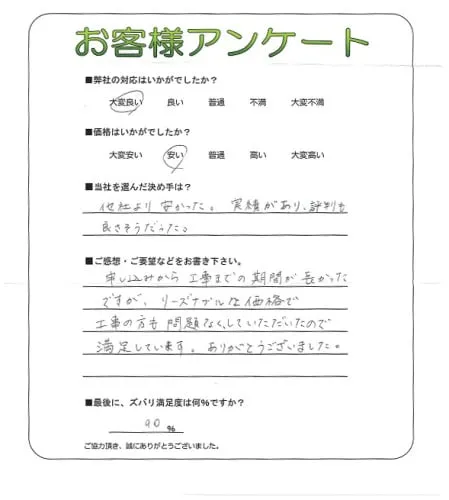 お客様アンケート
■弊社の対応はいかがでしたか?
大変良い 良い 普通 不満 大変不満
■価格はいかがでしたか?
大変安い 安い 普通 高い 大変高い
■当社を選んだ決め手は?
他社より安かった。実績があり、評判も
良さそうだった。
■ご感想・ご要望などをお書き下さい。
申し込みから工事までの期間が長かった
ですが、リーズナブルな価格で
工事の方も問題なくしていただいたので
満足しています。ありがとうございました。
■最後に、ズバリ満足度は何%ですか?
90 %
ご協力頂き、誠にありがとうございました。